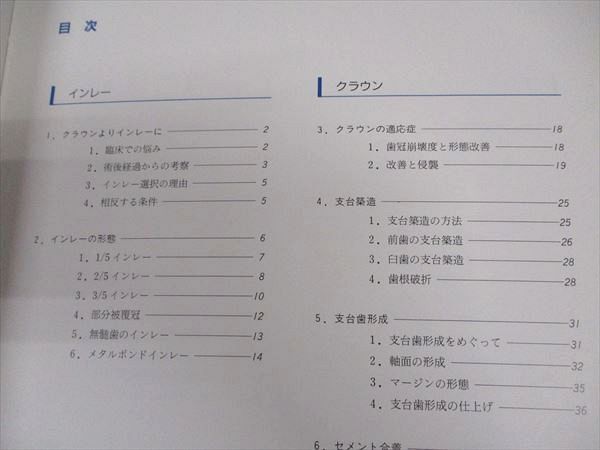 目 次
インレー
1. クラウンよりインレーに 2
1. 臨床での悩み 2
2. 術後経過からの考察 3
3. インレー選択の理由 5
4. 相反する条件 5
2. インレーの形態 6
1. 1/5 インレー 7
2. 2/5 インレー 8
3. 3/5 インレー 10
4. 部分被覆冠 12
5. 無髄歯のインレー 13
6. メタルボンドインレー 14
クラウン
3. クラウンの適応症 18
1. 歯冠崩壊度と形態改善 18
2. 改善と侵襲 19
4. 支台築造 25
1. 支台築造の方法 25
2. 前歯の支台築造 26
3. 臼歯の支台築造 28
4. 歯根破折 28
5. 支台歯形成 31
1. 支台歯形成をめぐって 31
2. 軸面の形成 32
3. マージンの形態 35
4. 支台歯形成の仕上げ 36
6. セメント合着